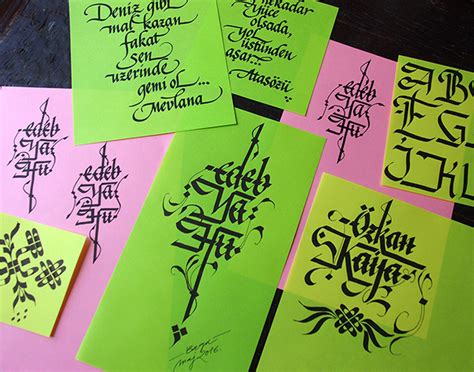 Deniz gibi
mal kazan
fakat
sen
üzerinde
gemi ol...
Mevlana
kadar
yüce
olsada,
yol
üstünden
aşar...
Atasözü
A B
E
I
edeb
Ya
Hu
edeb
Ya
Hu
edeb
Ya
Hu
edeb
Ya
Hu
may 2016.
Özkan
Kaya